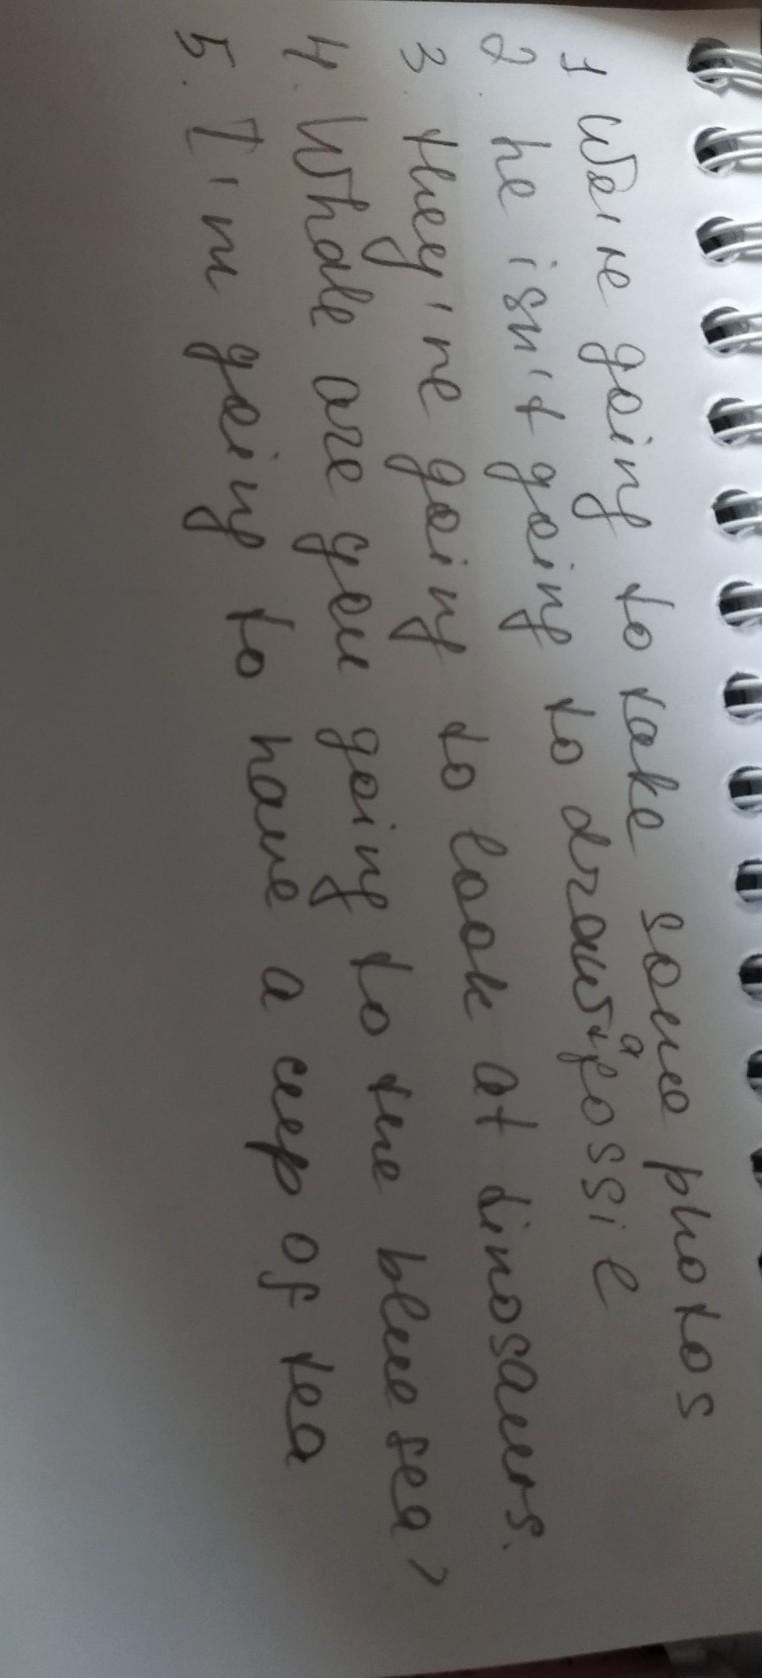 1 We're going to take some photos
2. he isn't going to draw a fossil
3. they're going to look at dinosaurs.
4. Whale are you going to the blue sea?
5. I'm going to have a cup of tea